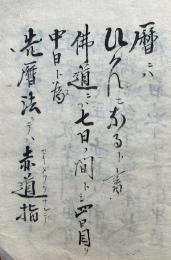 暦ニハ
ひがんになるト書
佛道ニハ七日ノ間トシ四日目ヲ
中日ト為
先暦法ニテハ赤道指